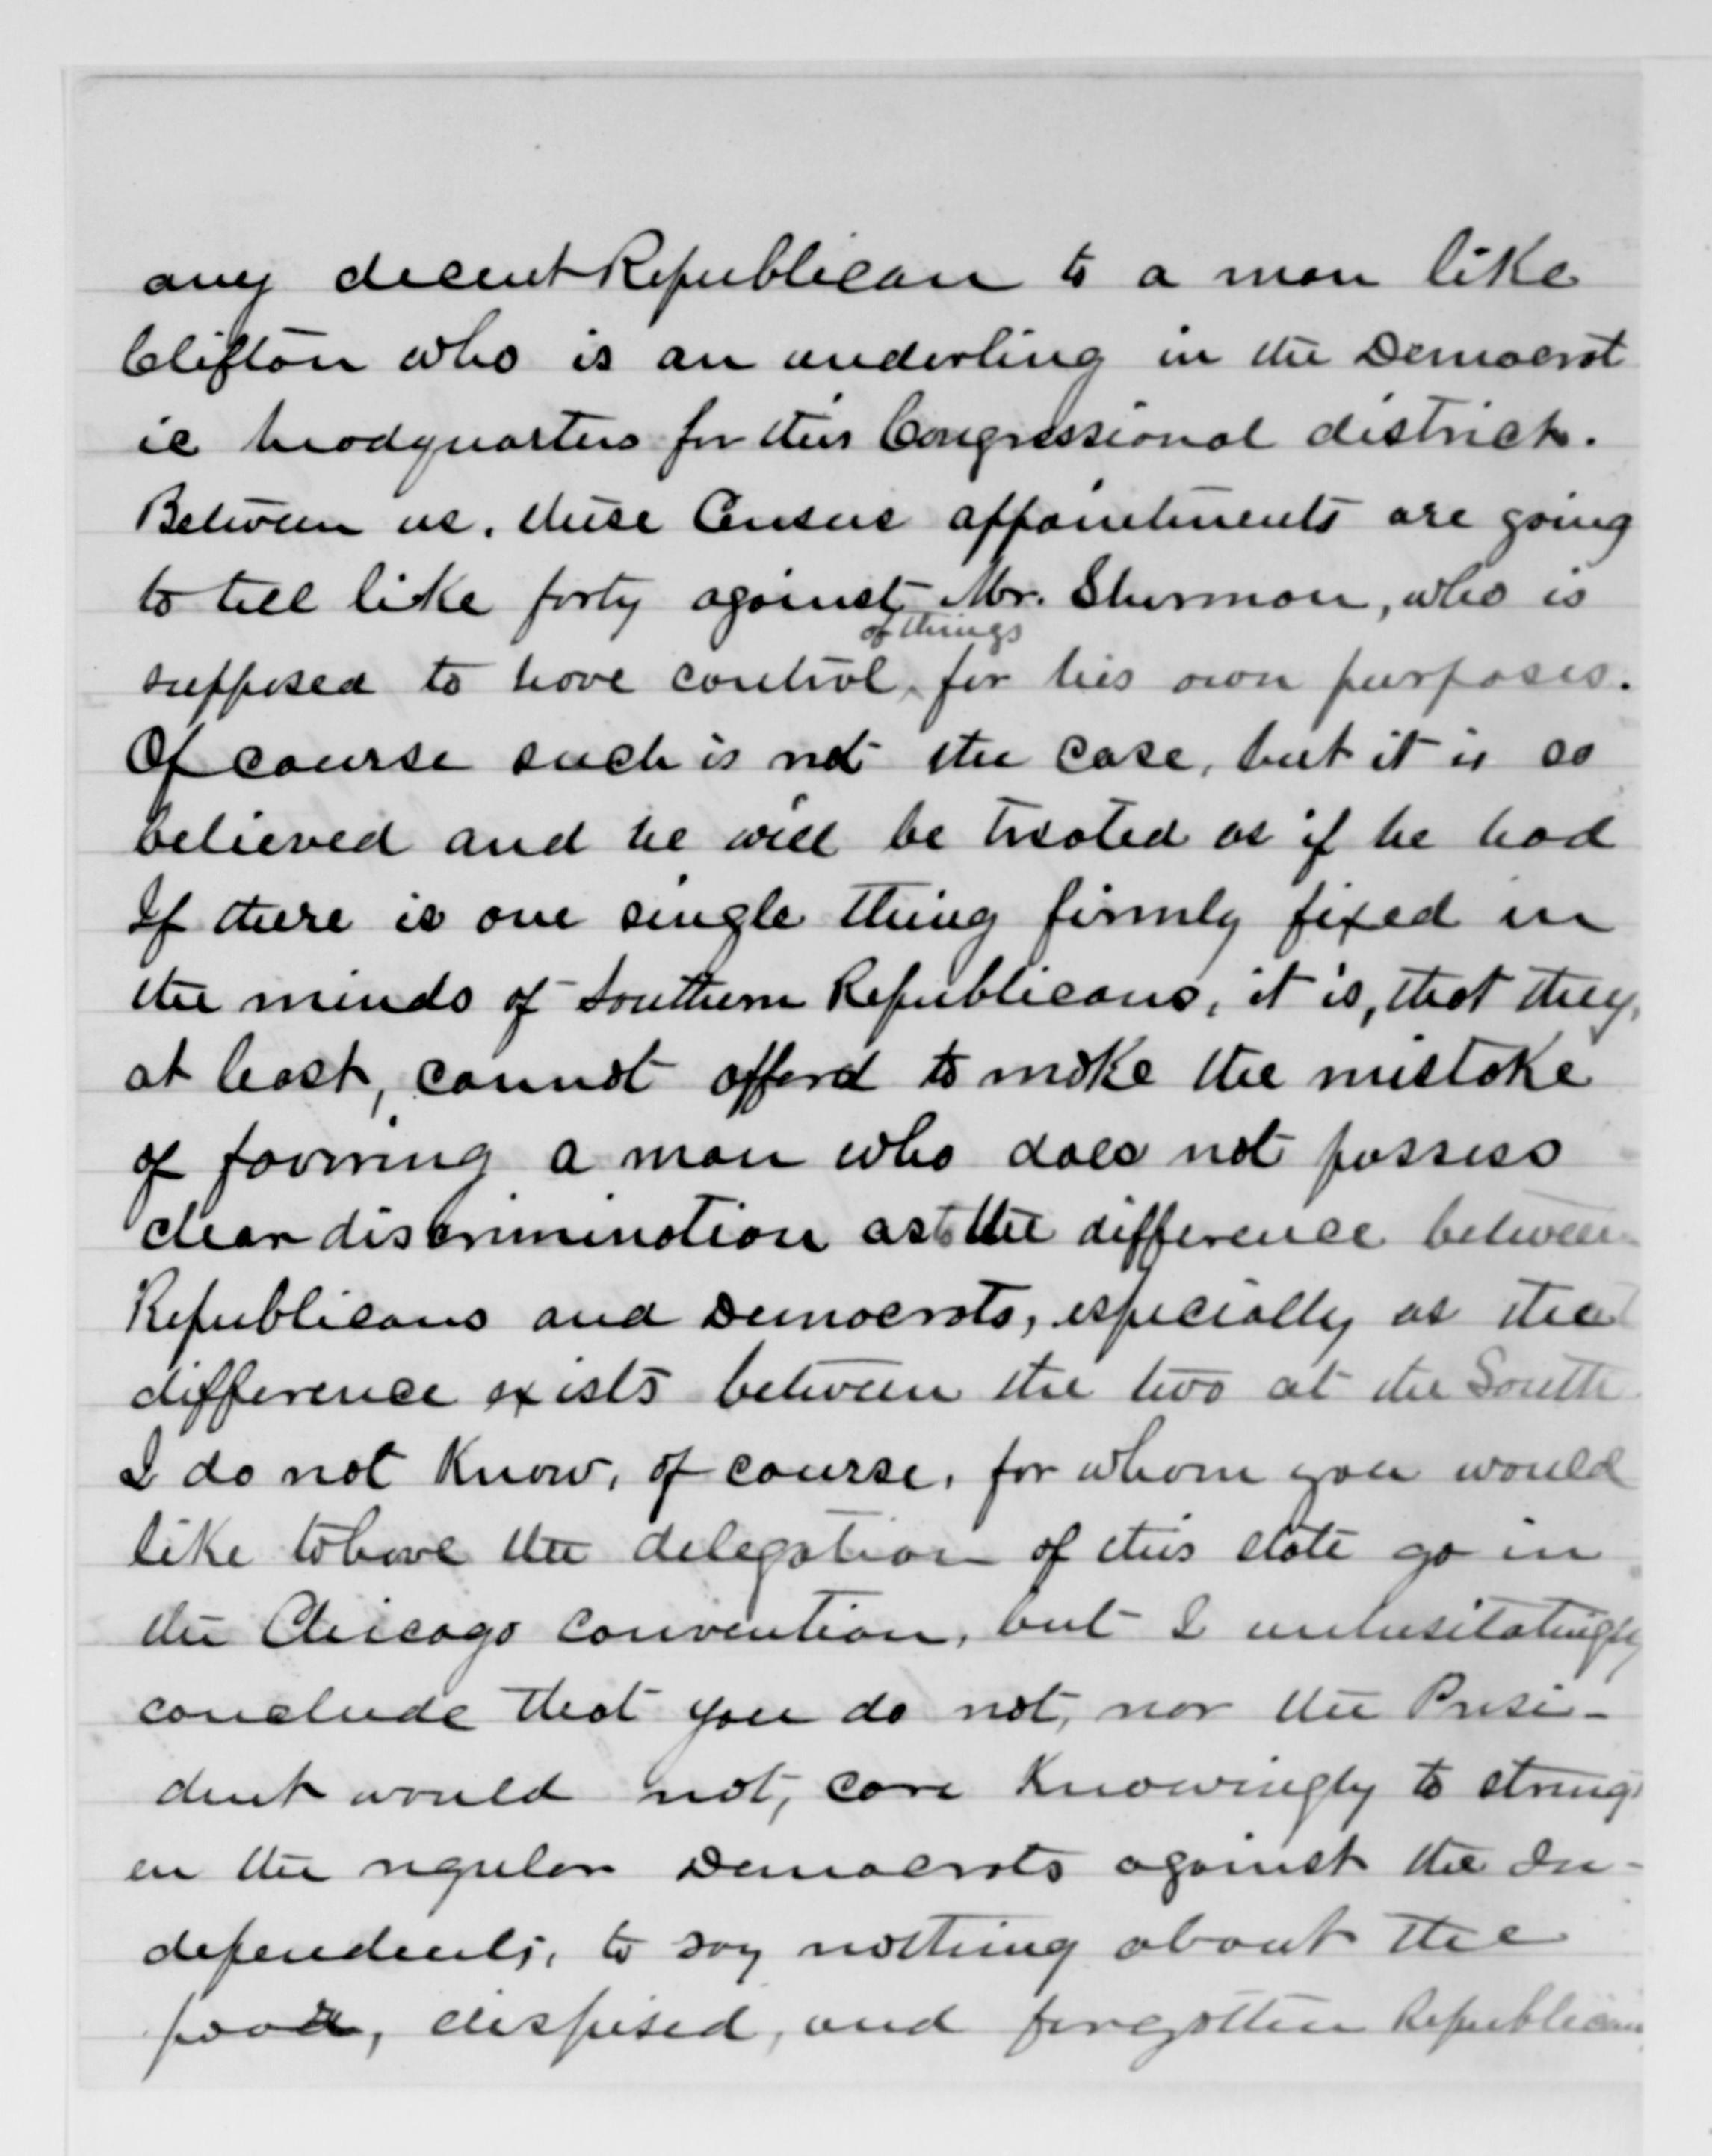 any decent Republican to a man like
Clifton who is an underling in the Democrat
ic headquarters for this Congressional district.
Between us, these Census appointments are going
to tell like forty against Mr. Sherman, who is
of things
supposed to have control for his own purposes.
Of course such is not the case, but it is so
believed and he will be treated as if he had
If there is one single thing firmly fixed in
the minds of Southern Republicans, it is, that they,
at least, cannot afford to make the mistake
of favoring a man who does not possess
clear discrimination as to the difference between
Republicans and Democrats, especially as the
difference exists between the two at the South
I do not know, of course, for whom you would
like to have the delegation of this state go in
the Chicago convention, but I unhesitatingly
conclude that you do not, nor the Presi-
dent would not, care knowingly to streng
en the regular Democrats against the In-
dependents, to say nothing about the
poor, despised, and forgotten Republicans